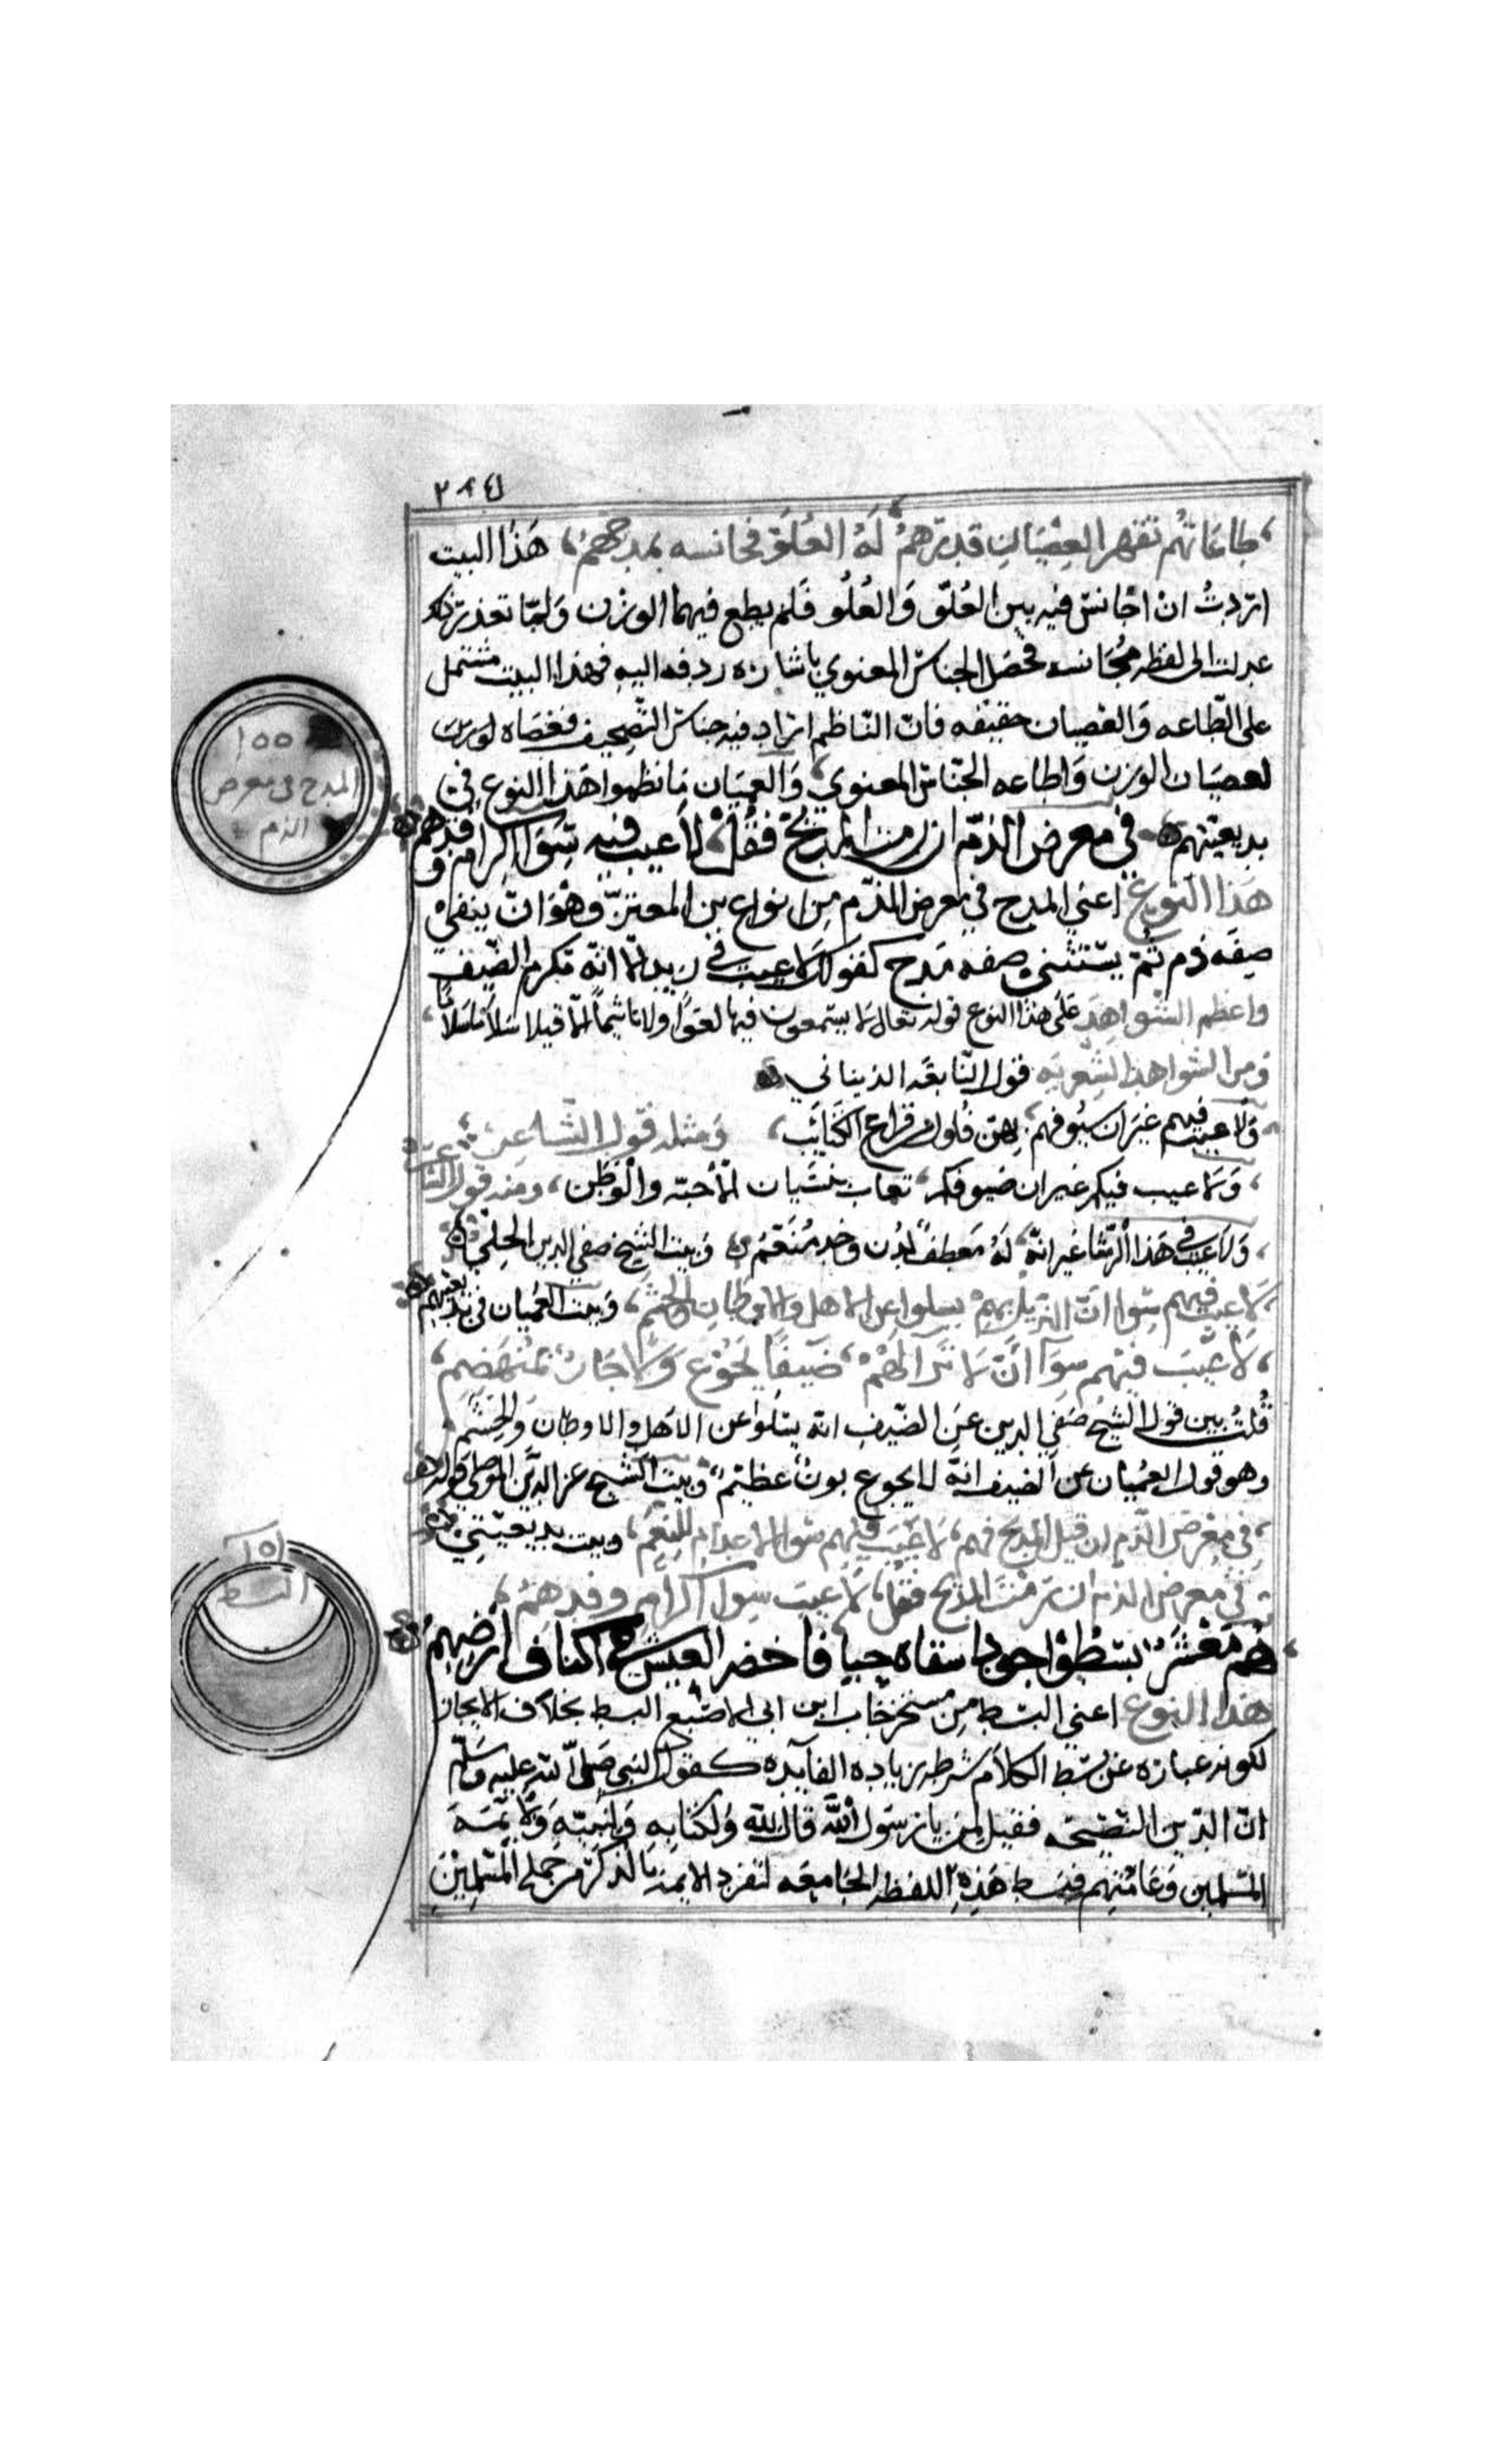 ٢٨٤
طاعاتهم تقهر العصيان قدرهم له العلو فجانسه بمدحهم هذا البيت
اردت ان اجانس فيه بين العلو والغلو فلم يطع فيهما الوزن ولما تعذر ذلك
عدلت الى لفظه مجانسه فحصل الجناس المعنوي باشاره ردفه اليه فهذا البيت مشتمل
على الطاعه والعصيان حقيقه فان الناظم اراد فيه جناس التصحيف فعصاه الوزن
لعصيان الوزن واطاعه الجناس المعنوي والعميان ما نظموا هذا النوع في
بديعيتهم في معرض الذم ان رمت المديح فقل لا عيب فيه سوا اكرام وفدهم
١٥٥
المدح في معرض
الذم
هذا النوع اعني المدح في معرض الذم من انواع بن المعتز وهو ان ينفي
صفه ذم ثم يستثني صفه مدح كقولك لا عيب في زيد الا انه مكرم الضيف
واعظم الشواهد على هذا النوع قوله تعالى لا يسمعون فيها لغوا ولا تاثيما الا قيلا سلاما سلاما
ومن الشواهد الشعريه قول النابغه الذبياني
ولا عيب فيهم غير ان سيوفهم بهن فلول من قراع الكتائب ومثله قول الشاعر
ولا عيب فيكم غير ان ضيوفكم تعاب بنسيان الاحبه والوطن ومنه قول
ولا عيب في هذا الرشا غير انه له معطف لدن وخد منعم وبيت الشيخ صفي الدين الحلي
لا عيب فيهم سوا ان النزيل بهم يسلوا عن الاهل والاوطان والحشم وبيت العميان في بديعيتهم
لا عيب فيهم سوا ان لا ترا لهم ضيفا يجوع ولا جار بمنهضم
قلت بين قول الشيخ صفي الدين عن الضيف انه يسلوا عن الاهل والاوطان والحشم
وهو قول العميان عن الضيف انه لا يجوع بون عظيم وبيت الشيخ عز الدين الموصلي قوله
في معرض الذم ان قيل المديح فهم لا عيب فيهم سوا الاعدام للنعم وبيت بديعيتي
في معرض الذم ان رمت المديح فقل لا عيب سوا اكرام وفدهم
هم معشر بسطوا جودا سقاه حيا فاخضر العيش في اكناف ارضهم
١٥٦
البسط
هذا النوع اعني البسط من مستخرجات ابن ابي الاصبع البسط بخلاف الايجاز
لكونه عباره عن بسط الكلام شرطه زياده الفائده كقول النبي صلى الله عليه وسلم
ان الدين النصيحه فقيل لمن يا رسول الله قال لله ولكتابه ولنبيه ولائمه
المسلمين وعامتهم فبسط هذه اللفظه الجامعه لتفرد الائمه بالذكر من جمله المسلمين